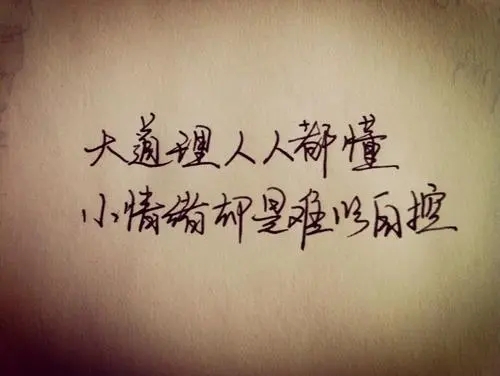 大道理人人都懂
小情绪却是难以自控